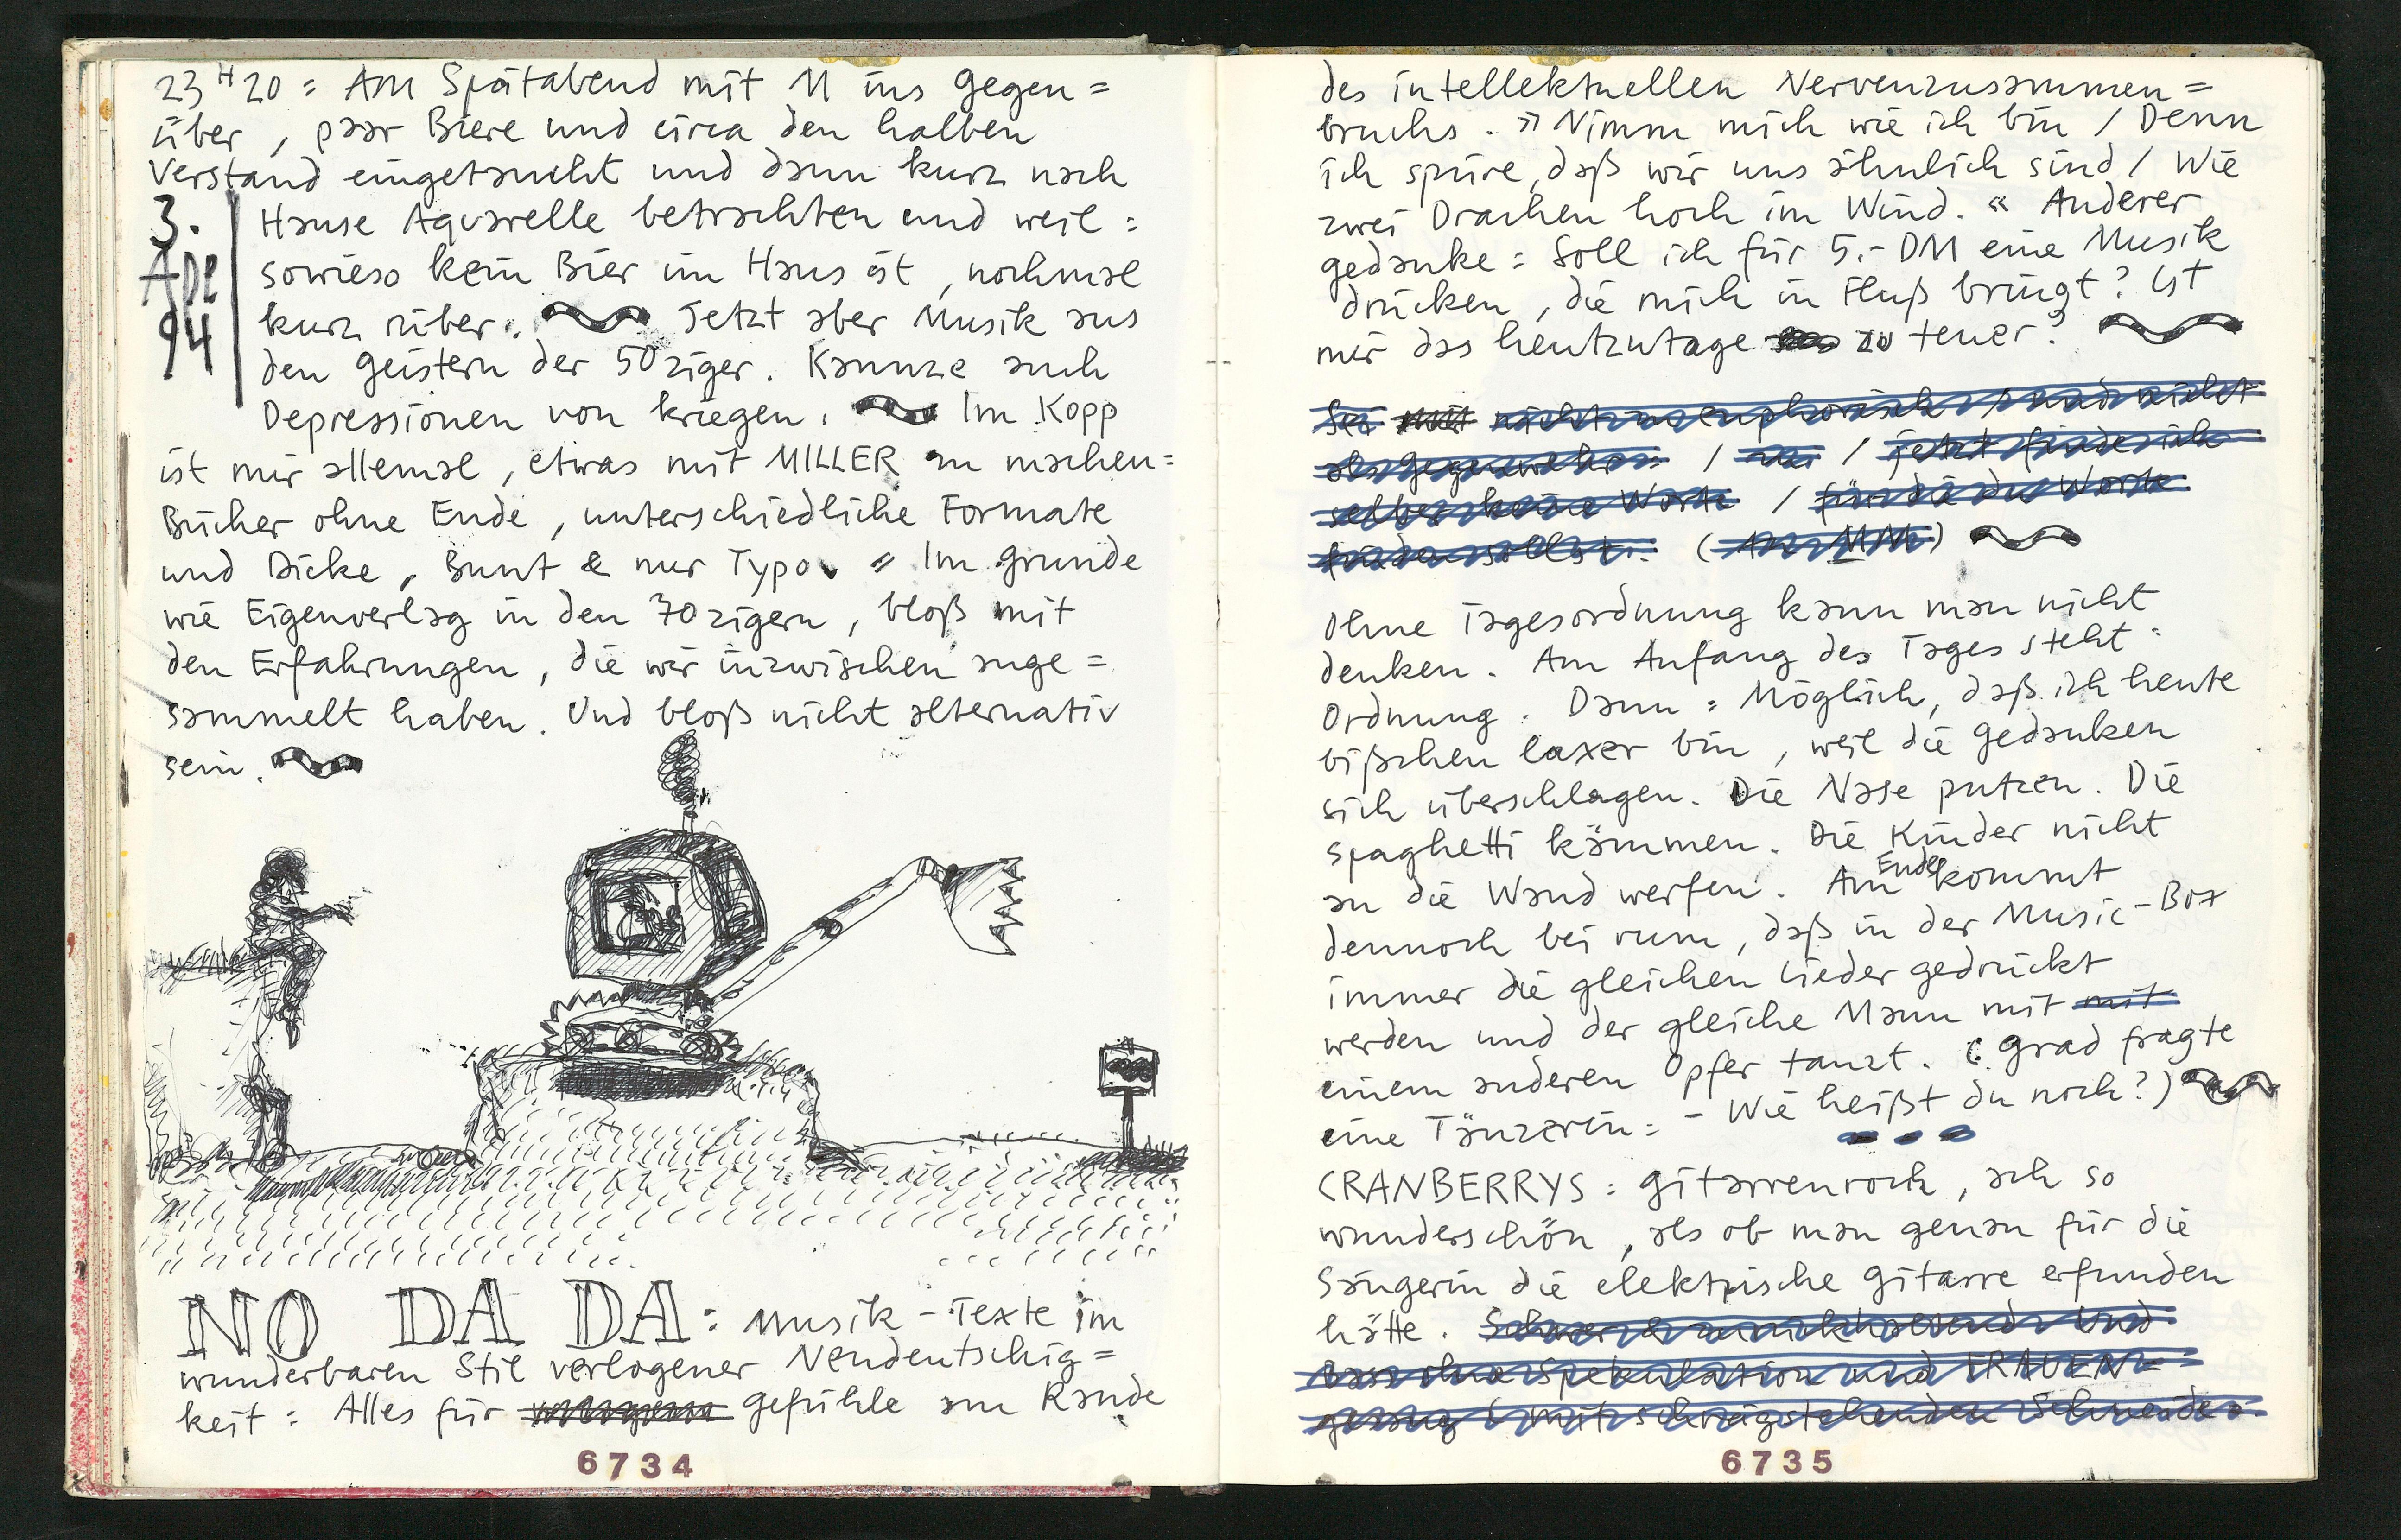 23 H 20 = Am Spätabend mit M ins Gegen=
über, paar Biere und circa den halben
Verstand eingetaucht und dann kurz nach
3.
APR
94
Hause Aquarelle betrachten und weil :
sowieso kein Bier im Haus ist, nochmal
kurz rüber. Jetzt aber Musik aus
den Geistern der 50ziger. Kannze auch
Depressionen von kriegen. Im Kopp
ist mir allemal, etwas mit MILLER zu machen =
Bücher ohne Ende, unterschiedliche Formate
und Dicke, Bunt & nur Typo. = Im Grunde
wie Eigenverlag in den 70zigern, bloß mit
den Erfahrungen, die wir inzwischen ange=
sammelt haben. Und bloß nicht alternativ
sein.
NO DA DA : Musik-Texte im
wunderbaren Stil verlogener Neudeutschig=
keit : Alles für Gefühle am Rande
6734
des intellektuellen Nervenzusammen=
bruchs. »Nimm mich wie ich bin / Denn
ich spüre, daß wir uns ähnlich sind / Wie
zwei Drachen hoch im Wind.« Anderer
Gedanke = Soll ich für 5,- DM eine Musik
drücken, die mich in Fluß bringt? Ist
mir das heutzutage zu teuer?
Sei nicht zu euphorisch / und nicht
als Gegenwehr = / / jetzt finde ich
selber keine Worte / für die du Worte
finden sollst. (An MM)
Ohne Tagesordnung kann man nicht
denken. Am Anfang des Tages steht =
Ordnung. Dann = Möglich, daß ich heute
bißchen laxer bin, weil die Gedanken
sich überschlagen. Die Nase putzen. Die
Spaghetti kämmen. Die Kinder nicht
an die Wand werfen. Am Ende kommt
dennoch bei rum, daß in der Music-Box
immer die gleichen Lieder gedrückt
werden und der gleiche Mann mit mit
einem anderen Opfer tanzt. (Grad fragte
eine Tänzerin = - Wie heißt du noch?)
CRANBERRYS : Gitarrenrock, ach so
wunderschön, als ob man genau für die
Sängerin die elektrische Gitarre erfunden
hätte. Und
Bass ohne Spekulation und FRAUEN=
gesang (mit schrägstehenden
6735